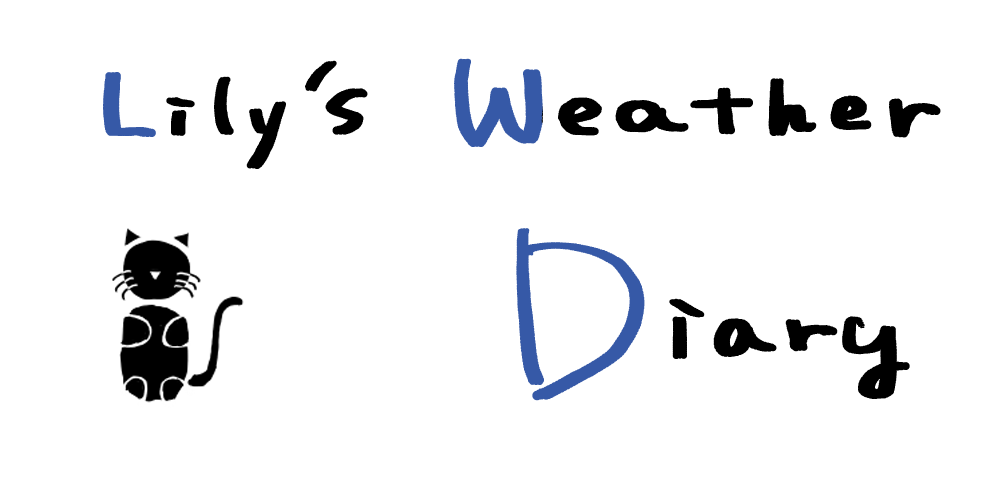 Lily's Weather
Diary